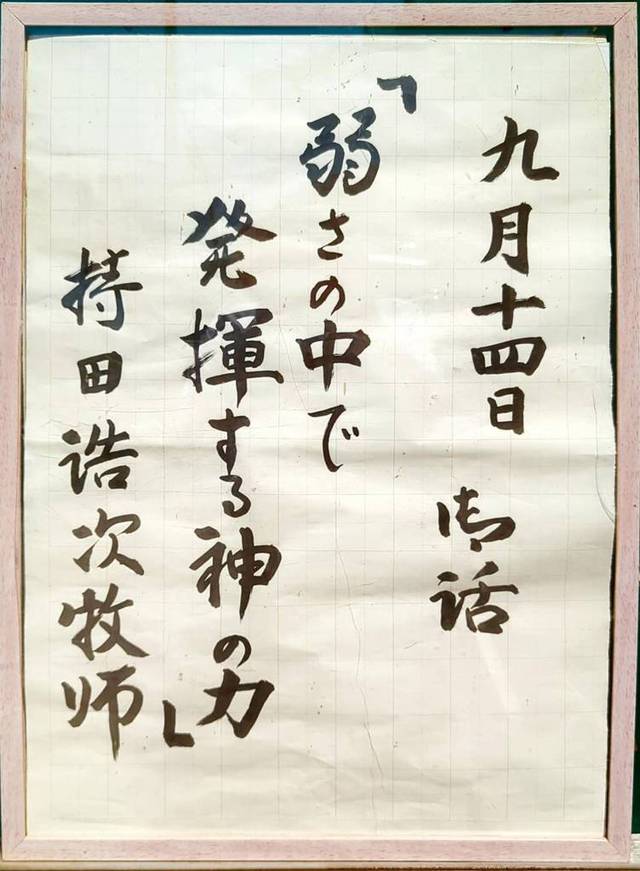 九月十四日 御話
「弱さの中で
発揮する神の力」
持田浩次牧師